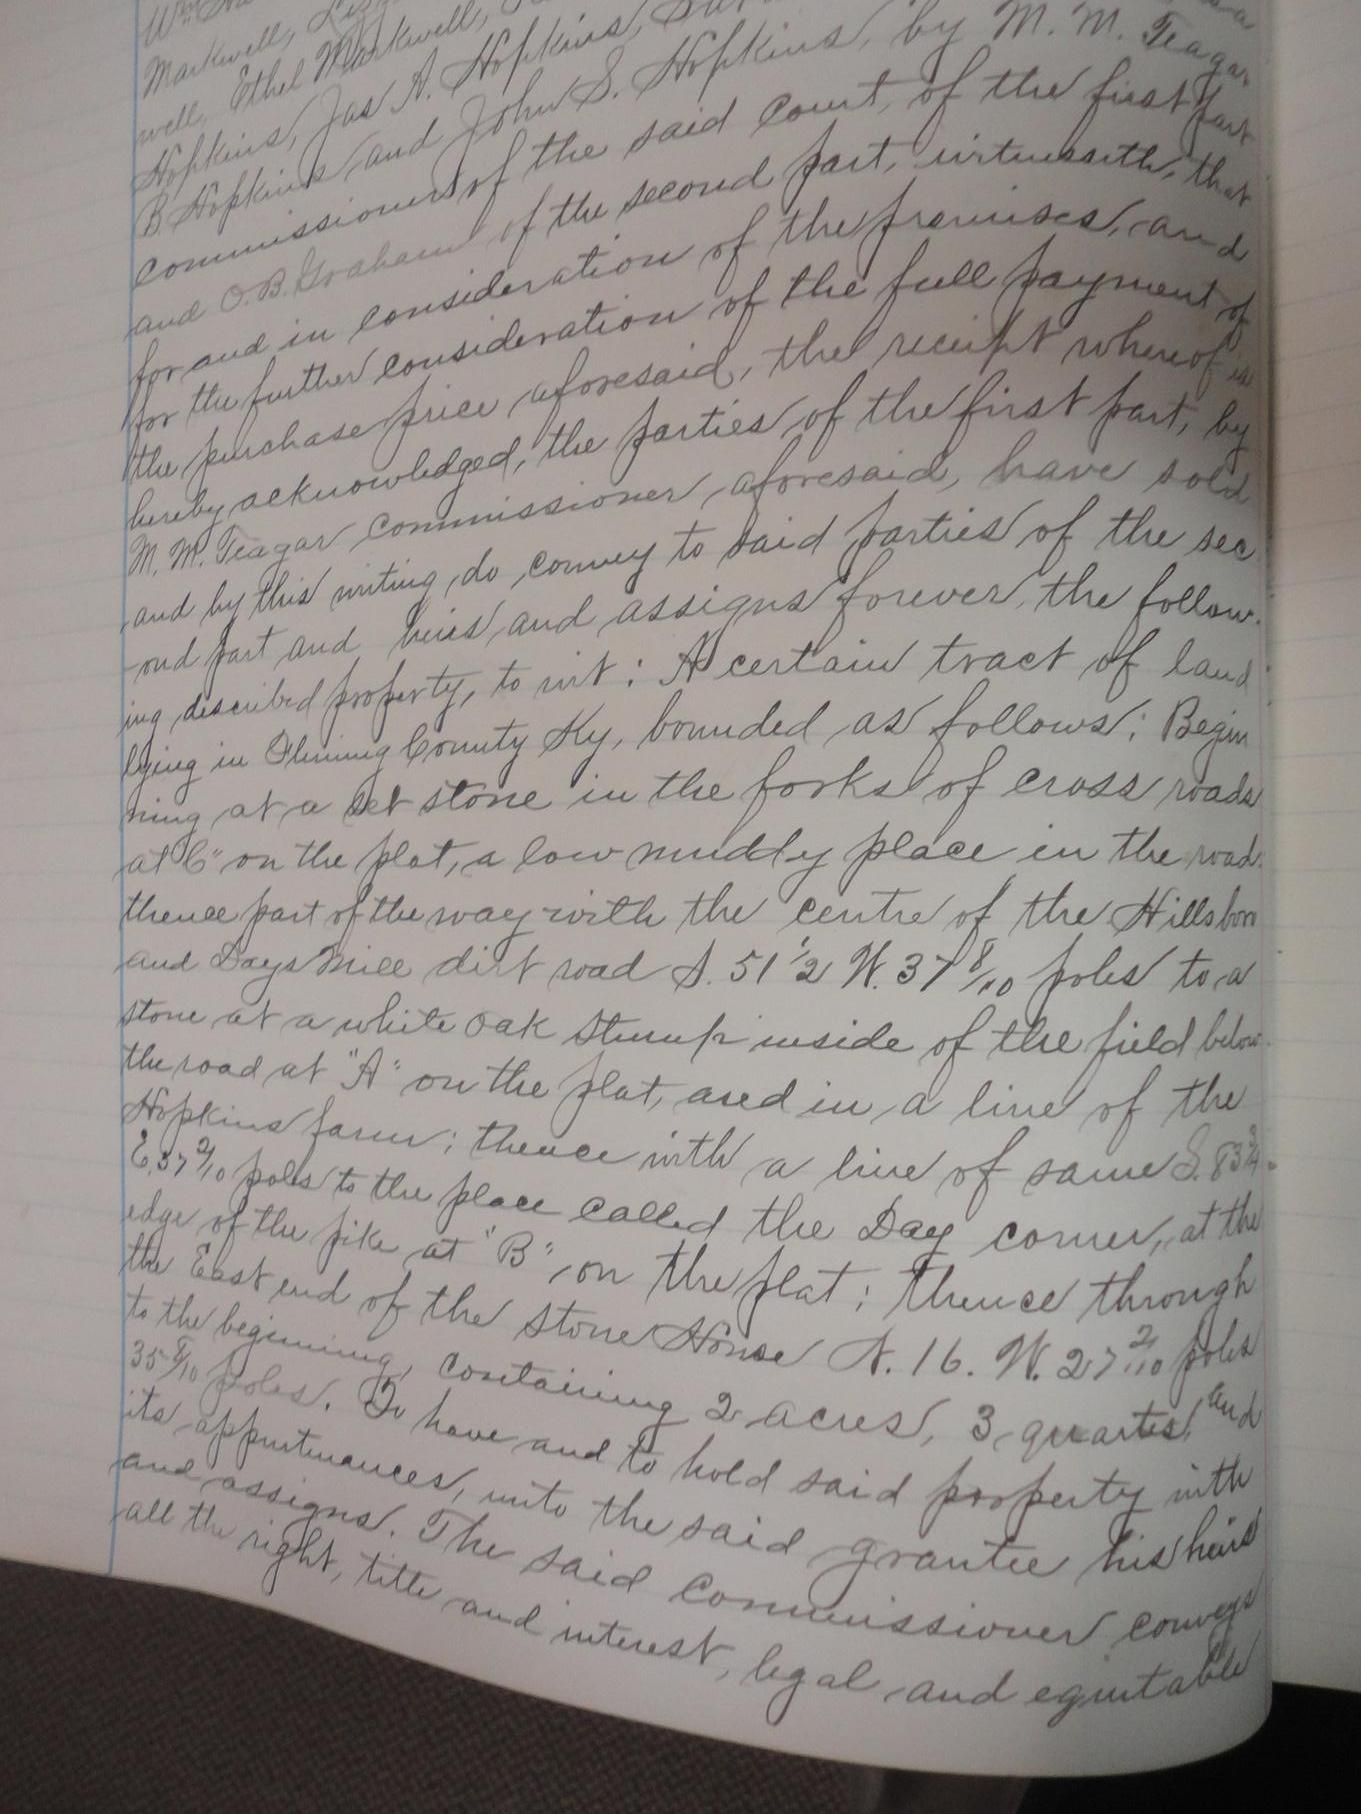 Markwell,
well, Ethel Markwell,
Hopkins, Jas A. Hopkins,
B Hopkins and John S. Hopkins, by M. M. Teagar
commissioner of the said court, of the first part
and O.B. Graham of the second part, witnesseth, that
for and in consideration of the premises, and
for the further consideration of the full payment of
the purchase price aforesaid, the receipt whereof is
hereby acknowledged, the parties of the first part, by
M. M. Teagar commissioner aforesaid, have sold
and by this writing do convey to said parties of the sec
ond part and heirs and assigns forever, the follow-
ing described property, to wit: A certain tract of land
lying in Fleming County Ky, bounded as follows: Begin
ning at a set stone in the forks of cross roads
at "C" on the plat, a low muddy place in the road.
thence part of the way with the centre of the Hillsboro
and Days Mill dirt road S. 51 1/2 W. 37 8/10 poles to a
stone at a white oak stump inside of the field below
the road at "A" on the plat, and in a line of the
Hopkins farm; thence with a line of same S. 83 3/4
E. 37 2/10 poles to the place called the Day corner, at the
edge of the pike at "B", on the plat; thence through
the East end of the stone House N. 16. W. 27 2/10 poles
to the beginning, containing 2 acres, 3 quartes, and
35 8/10 poles. To have and to hold said property with
its appurtenances, unto the said grantee his heirs
and assigns. The said commissioner conveys
all the right, title and interest, legal and equitable